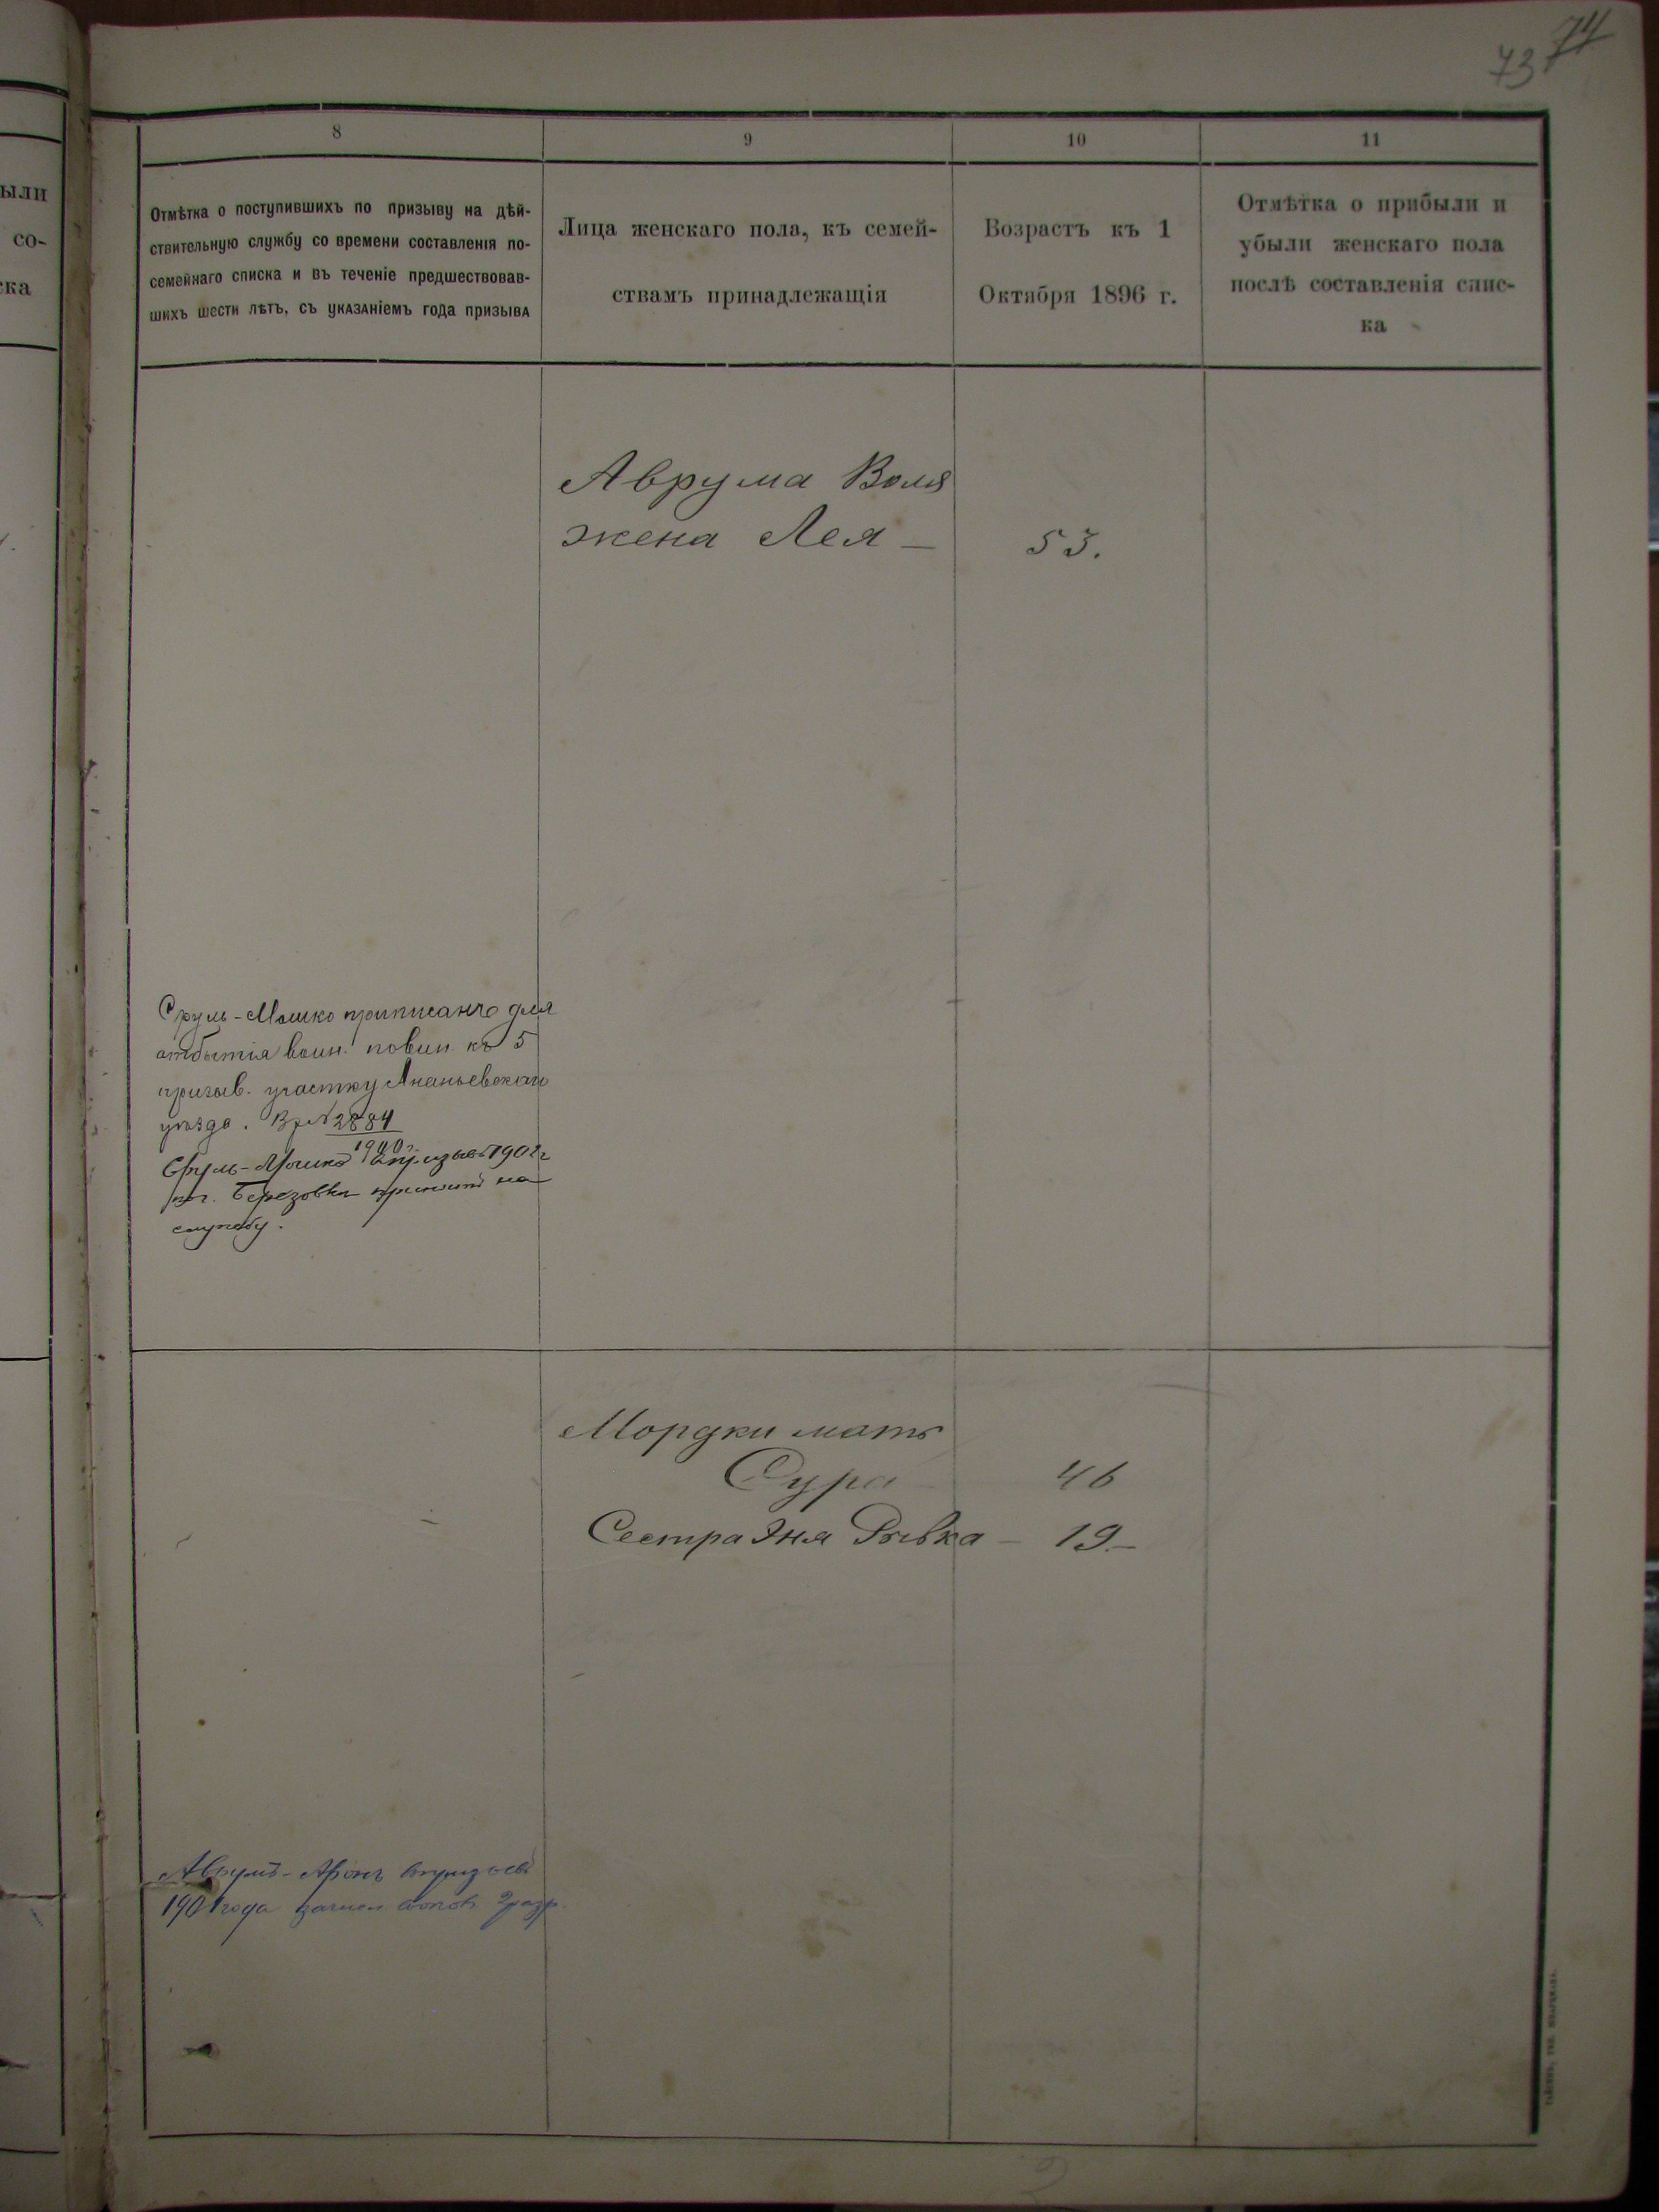 73 74
ыли
со-
ска
8
9
10
11
Отмѣтка о поступившихъ по призыву на дѣй-
ствительную службу со времени составленія по-
семейнаго списка и въ теченіе предшествовав-
шихъ шести лѣтъ, съ указаніемъ года призыва
Лица женскаго пола, къ семей-
ствамъ принадлежащія
Возрастъ къ 1
Октября 1896 г.
Отмѣтка о прибыли и
убыли женскаго пола
послѣ составленія спис-
ка
Аврума Воля
жена Лея — 53.
Сруль-Мошко приписанъ для
отбытія воин. повин. къ 5
призыв. участку Ананьевскаго
уѣзда. Вх № 2884
1900г
Сруль-Мошко призыв 1902г
Березовка принятъ на
службу.
Мордки мать
Сура 46
Сестра Эня Рывка — 19.—
Аврумъ-Аронъ
1901 года зачислен 2 разр.